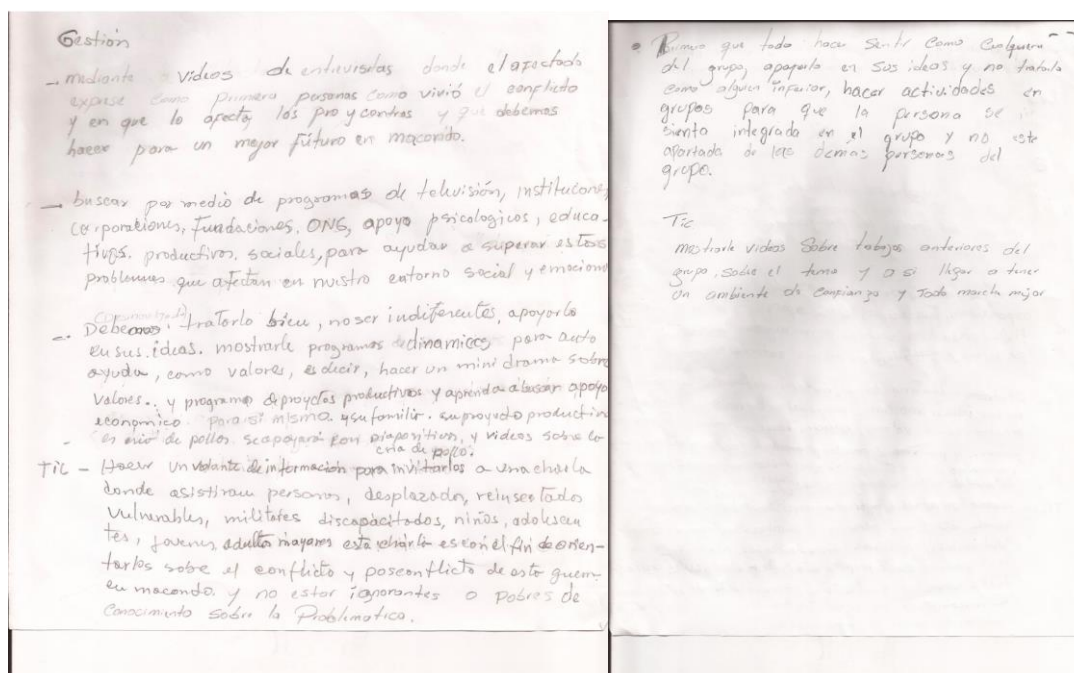 Gestión
- mediante videos de entrevistas donde el afectado
exprese como primera personas como vivió el conflicto
y en que lo afecta, los pro y contras y que debemos
hacer para un mejor fúturo en macondo.
- buscar por medio de programas de televisión, instituciones,
corporaciones, fundaciones, ONG, apoyo psicologicos, educa-
tivos, productivos, sociales, para ayudar a superar estos
problemas que afectan en nuestro entorno social y emociona
- Debemos tratarlo bien, no ser indiferentes, apoyarlo
en sus ideas. mostrarle programas dinamicos para auto
ayuda, como valores, es decir, hacer un mini drama sobre
valores.. y programas de proyectos productivos y aprenda a buscar apoyo
economico para si mismo y su familia. su proyecto productivo
es de pollos se apoyará con Diapositivas, y videos sobre la
cria de pollo.
TIC - Hacer un volante de información para invitarlos a una charla
donde asistiran personas, desplazado, reinsertados
vulnerables, militares discapacitados, niños, adolescen
tes, jovenes, adultos mayores esta charla es con el fin de orien-
tarlos sobre el conflicto y posconflicto de esta guerra
en macondo y no estar ignorantes o pobres de
conocimiento sobre la Problematica.
• Primero que todo hacer sentir como cualquiera
del grupo, apoyarla en sus ideas y no tratarla
como alguien inferior, hacer actividades en
grupos para que la persona se
sienta integrada en el grupo y no este
apartada de las demás personas del
grupo.
Tic
mostrarle videos sobre trabajos anteriores del
grupo, sobre el tema y a si llegar a tener
un ambiente de confianza y todo marcha mejor